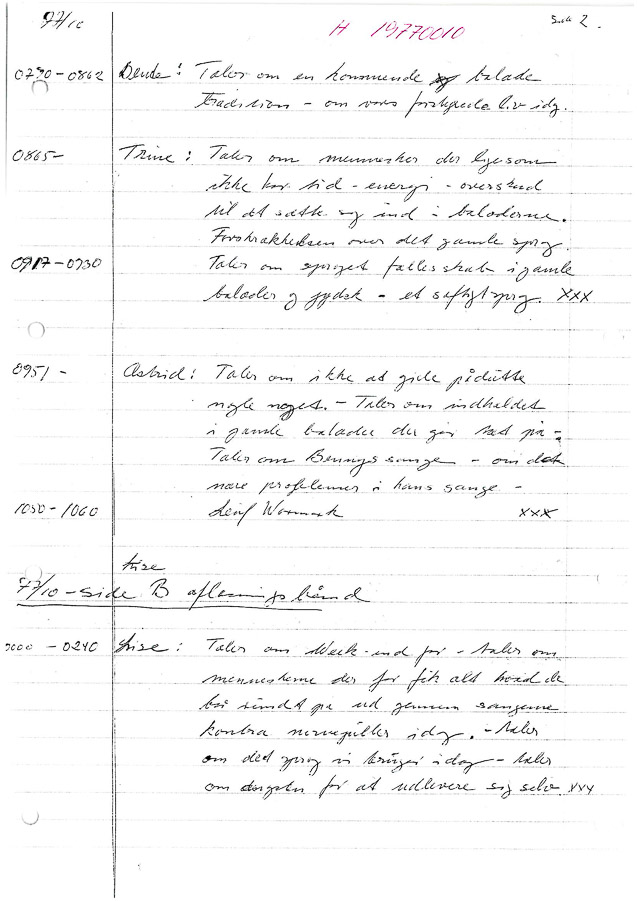 77/10
H 19770010
Side 2.
0790-0862 Bente: Taler om en kommende balade
tradition - om vores fortravlede liv idg.
0865- Trine: Taler om mennesker der ligesom
ikke har tid - energi - overskud
til at sætte sig ind i baladerne.
Forskrækkelsen over det gamle sprog.
0917-0930 Taler om sproget fællesskab i gamle
balader og jydsk - et saftigt sprog. XXX
0951- Astrid: Taler om ikke at gide pådutte
nogle noget. - Taler om indholdet
i gamle balader der går tæt på -
Taler om Bennys sange - om de
nære problemer i hans sange -
1050-1060 XXX
Lise
77/10 - side B aflæsningsbånd
0000-0240 Lise: Taler om Week-end før - taler om
menneskerne der før fik alt hvad de
har indst på ud gennem sangene
kontra nervepiller idag. - taler
om det sprog vi bruger idag - taler
om angsten for at udlevere sig selv. XXX